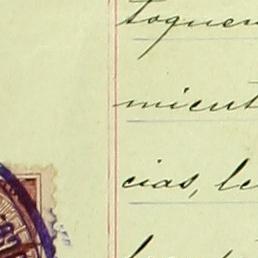 toquen
mient
cias, le